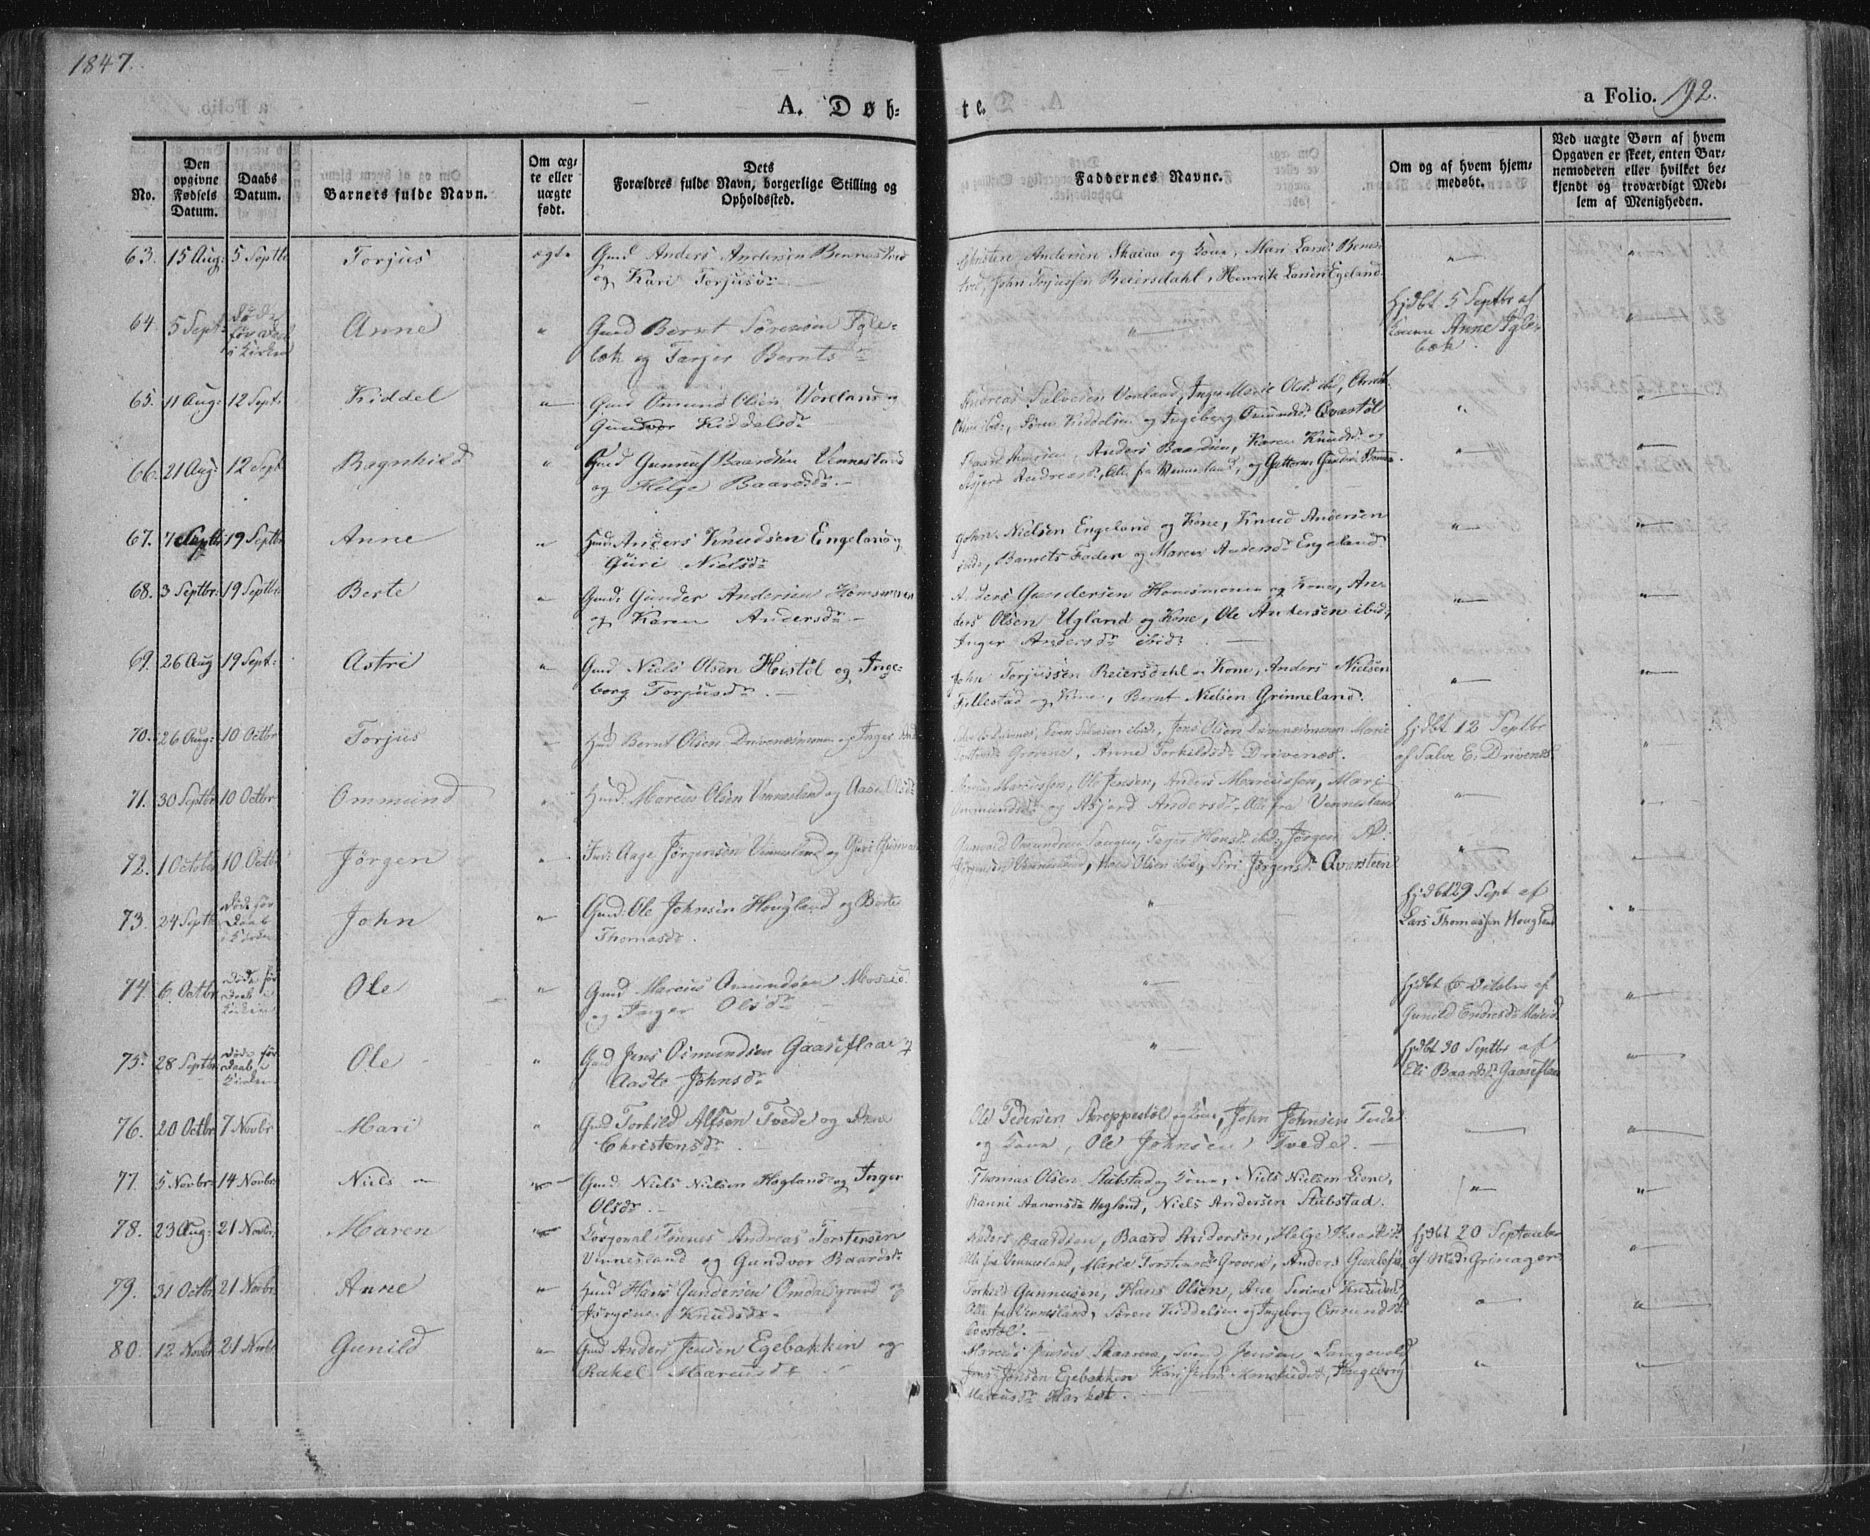 1847.
A. Døb-te.
a Folio. 192.
No.
Den opgivne Fødsels Datum.
Daabs Datum.
Barnets fulde Navn.
Om ægte eller uægte født.
Dets Forældres fulde Navn, borgerlige Stilling og Opholdssted.
Faddernes Navne.
Om og af hvem hjemmedøbt.
Ved uægte Børn af hvem Opgaven er skeet, enten Barnemoderen eller hvilket bekjendt og troværdigt Medlem af Menigheden.
63. 15 Aug: 5 Septbr Torjus ægte Gmd Anders Andersen Bennestvedt
og Kari Torjusdr
Christen Andersen Skaiaa og Kone, Mari Larsd Bennestvedt, John Torjussen Reiersdahl, Henrik Larsen Egeland
64. 5 Sept: Død før Daab i Kirken Anne " Gmd Bernt Sørensen Iglebæk og Tarjer Berntsdr
" Hjdbt 5 Septbr af Konen Anne Iglebæk. "
65. 11 Aug: 12 Sept: Kiddel " Gmd Omund Olsen Vonland og
Gundvor Kiddelsdr
Andreas Salvesen Vonland, Inger Marie Olsdr ibd,
Olsen ibid, Søren Kiddelsen og Ingeborg Omundsdr Qvastøl
66. 21 Aug: 12 Sept: Ragnhild " Gmd Gunnuf Baardsen Vennesland
og Helge Baardsdr
Anders Baardsen, Karen Knudsdr og
Asjerd Andreasdr, Alle fra Vennesland, og Guttorm
67. 7 Septbr 19 Septbr Anne " Hmd: Anders Knudsen Engeland og
Guri Nielsdr
John Nielsen Engeland og Kone, Knud Andersen
ibid, Barnets Fader og Maren Andersdr Engeland
68. 3 Septbr: 19 Septbr Berte " Gmd: Gunder Andersen Homsmoen
og Karen Andersdr
Anders Gundersen Homsmoen og Kone, Anders Olsen Ugland og Kone, Ole Andersen ibid,
Inger Andersdr ibid.
69. 26 Aug 19 Sept: Astri " Gmd Niels Olsen Heistøl og Ingeborg Torjusdr
John Torjussen Reiersdahl og Kone, Anders Nielsen
Fillestad og Kone, Bernt Nielsen Grinneland.
70. 26 Aug: 10 Octbr Torjus " Hmd Bernt Olsen Drivenesmoen og Inger
Jens Olsen Drivenesmoen Marie
Grovene, Anne Torkildsdr Drivenes.
Hjdbt 12 Septbr
af Salve E. Drivenes
71. 30 Septbr 10 Octbr Ommund " Hmd: Marcus Olsen Vennesland og Aase Olsdr
Ole Jensen, Anders Marcussen, Mari
Ommundsdr og Asjerd Andersdr Alle fra Vennesland
72. 1 October 10 Octbr Jørgen " Aage Jørgensen Vennesland og Guri
Jørgen
Vennesland, Ole Olsen ibid, Siri Jørgensdr Qvarsteen
73. 24 Septbr Død før Daab i Kirken John " Gmd: Ole Johnsen Hougland og Berte
Thomasdr.
" Hjdbt 29 Sept af
Lars Thomassen Hougland "
74. 6. Octbr Døde før Daab i Kirken Ole " Gmd Marcus Omundsen Moseid
og Inger Olsdr
" Hjdbt 6 October af
Gunild Endresdr Moseid "
75. 28 Septbr Døde før Daab i Kirken Ole " Gmd Jens Osmundsen Gaaseflaae og
Aaste Johnsdr
" Hjdbt 30 Septbr af
Eli Baardsdr Gaaseflaae "
76. 20 Octbr 7 Novbr Mari " Gmd Torkild Alfsen Tvede og Ane
Christensdr
Ole Pedersen Skreppestøl og Kone, John Johnsen Tvede
og Kone, Ole Johnsen Tvede.
77. 5 Novbr: 14 Novbr: Niels " Gmd: Niels Nielsen Hogland og Inger
Olsdr.
Thomas Olsen Stubstad og Kone, Niels Nielsen Lione,
Ranni Aanonsdr Hogland, Niels Andersen Stubstad.
78. 23 Aug: 21 Novbr. Maren " Corporal Tønnes Andreas Torstensen
Vennesland og Gundvor Baardsdr
Anders Baardsen, Baard Andersen, Helge
Alle fra Vennesland, Marie Torstensdr Grovene, Anders
Hjdbt 20 September
af Mad: Grimager
79. 31 Octbr 21 Novbr. Anne " Hmd Hans Gundersen Omdalsgrund og
Jørgine Knudsdr
Torkild Gunnusen, Hans Olsen, Ane Serine Knudsdr,
Alle fra Vennesland, Søren Kiddelsen og Ingeborg Omundsdr
Qvastøl.
80. 12 Novbr 21 Novbr Gunild " Gmd Anders Jensen Egebakken og
Rakel Marcusdr
Marcus Jensen Skaarene, Jensen Langevold,
Jens Jensen Egebakken, Kari, Ingeborg
Marcusdr